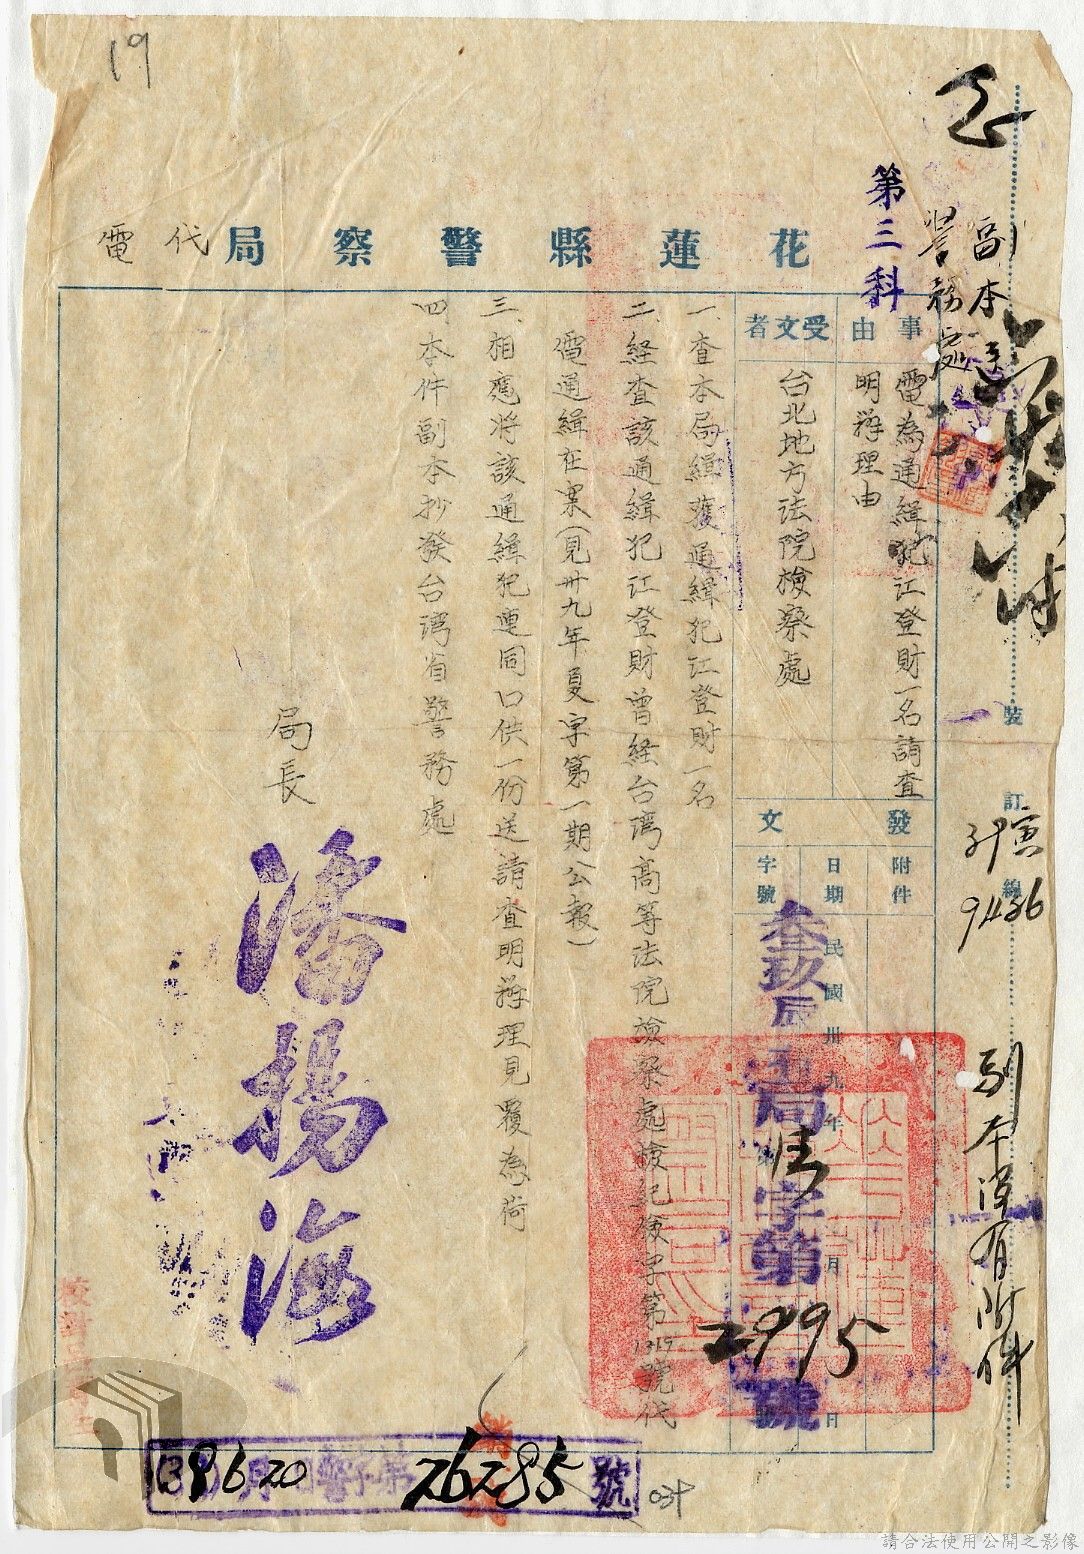 19
副本
警務處
第三科
花蓮縣警察局代電
事由
電為通緝犯江登財一名請查
明辦理由
受文者
台北地方法院檢察處
發文
附件
日期
字號
民國卅九年 月 日
叁玖 局 字第2995號
一、查本局緝獲通緝犯江登財一名
二、経查該通緝犯江登財曾経台湾高等法院檢察處檢紀儉字第1317號代
電通緝在案(見卅九年夏字第一期公報)
三、相應將該通緝犯連同口供一份送請查明辦理見覆為荷
四、本件副本抄發台湾省警務處
局長
潘揚海
裝訂線
9436
副本沒有附件
39 6 20
26285號
請合法使用公開之影像